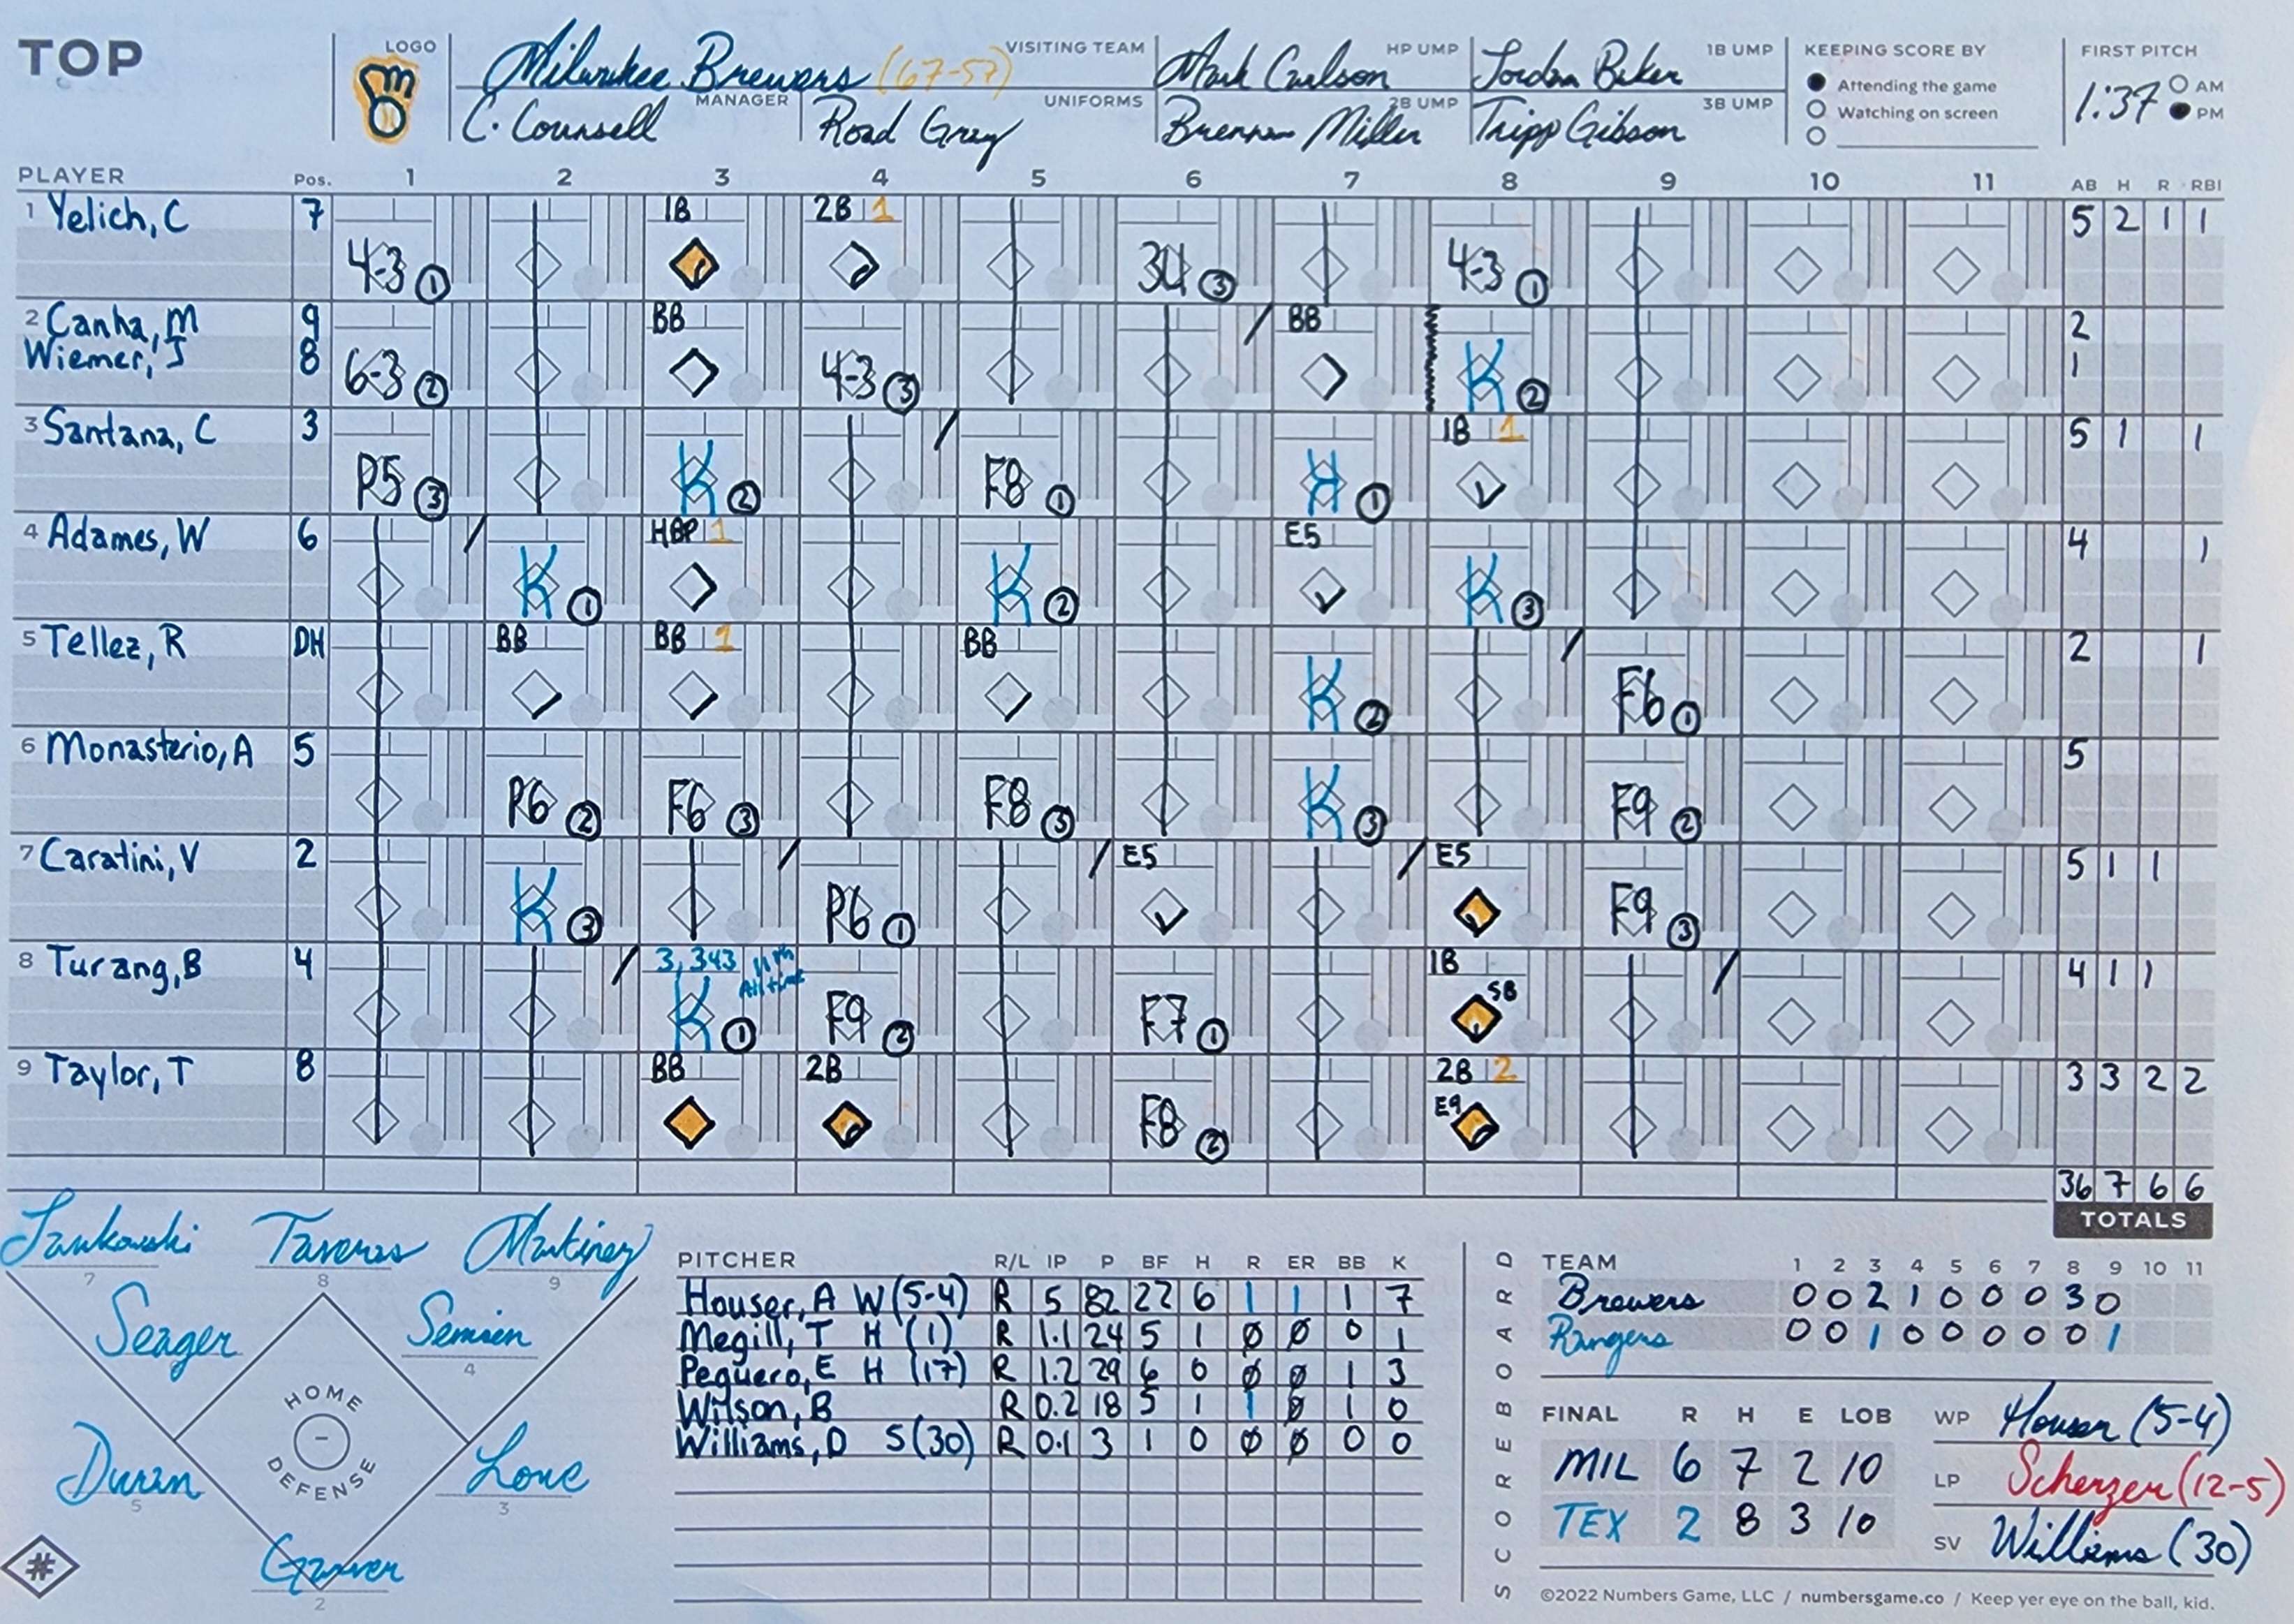 TOP
LOGO
Milwaukee Brewers (67-57) VISITING TEAM
Mark Carlson HP UMP
Jordan Baker 1B UMP
C. Counsell MANAGER
Road Grey UNIFORMS
Brennan Miller 2B UMP
Tripp Gibson 3B UMP
KEEPING SCORE BY
Attending the game
Watching on screen
FIRST PITCH
1:37 AM
PM
PLAYER Pos. 1 2 3 4 5 6 7 8 9 10 11 AB H R RBI
1 Yelich, C 7 4-3 ① 1B 2B 1 3U ③ 4-3 ① 5 2 1 1
2 Canha, M 9 6-3 ② BB 4-3 ③ BB 2
Wiemer, J 8 K ② 1
3 Santana, C 3 P5 ③ K ② F8 ① K ① 1B 1 5 1 1
4 Adames, W 6 K ① HBP 1 K ② E5 K ③ 4 1
5 Tellez, R DH BB BB 1 BB K ② F6 ① 2 1
6 Monasterio, A 5 P6 ② F6 ③ F8 ③ K ③ F9 ② 5
7 Caratini, V 2 K ③ P6 ① E5 E5 F9 ③ 5 1 1
8 Turang, B 4 3,343 11th All time K ① F9 ② F7 ① 1B SB 4 1 1
9 Taylor, T 8 BB 2B F8 ② 2B 2 E9 3 3 2 2
36 7 6 6
TOTALS
Jankowski 7
Taveras 8
Martinez 9
Seager
Semien 4
Duran 5
Lowe 3
Garver 2
HOME
DEFENSE
#
PITCHER R/L IP P BF H R ER BB K
Houser, A W (5-4) R 5 82 22 6 1 1 1 7
Megill, T H (1) R 1.1 24 5 1 0 0 0 1
Peguero, E H (17) R 1.2 29 6 0 0 0 1 3
Wilson, B R 0.2 18 5 1 1 0 1 0
Williams, D S (30) R 0.1 3 1 0 0 0 0 0
SCOREBOARD
TEAM 1 2 3 4 5 6 7 8 9 10 11
Brewers 0 0 2 1 0 0 0 3 0
Rangers 0 0 1 0 0 0 0 0 1
FINAL R H E LOB
MIL 6 7 2 10
TEX 2 8 3 10
WP Houser (5-4)
LP Scherzer (12-5)
SV Williams (30)
©2022 Numbers Game, LLC / numbersgame.co / Keep yer eye on the ball, kid.